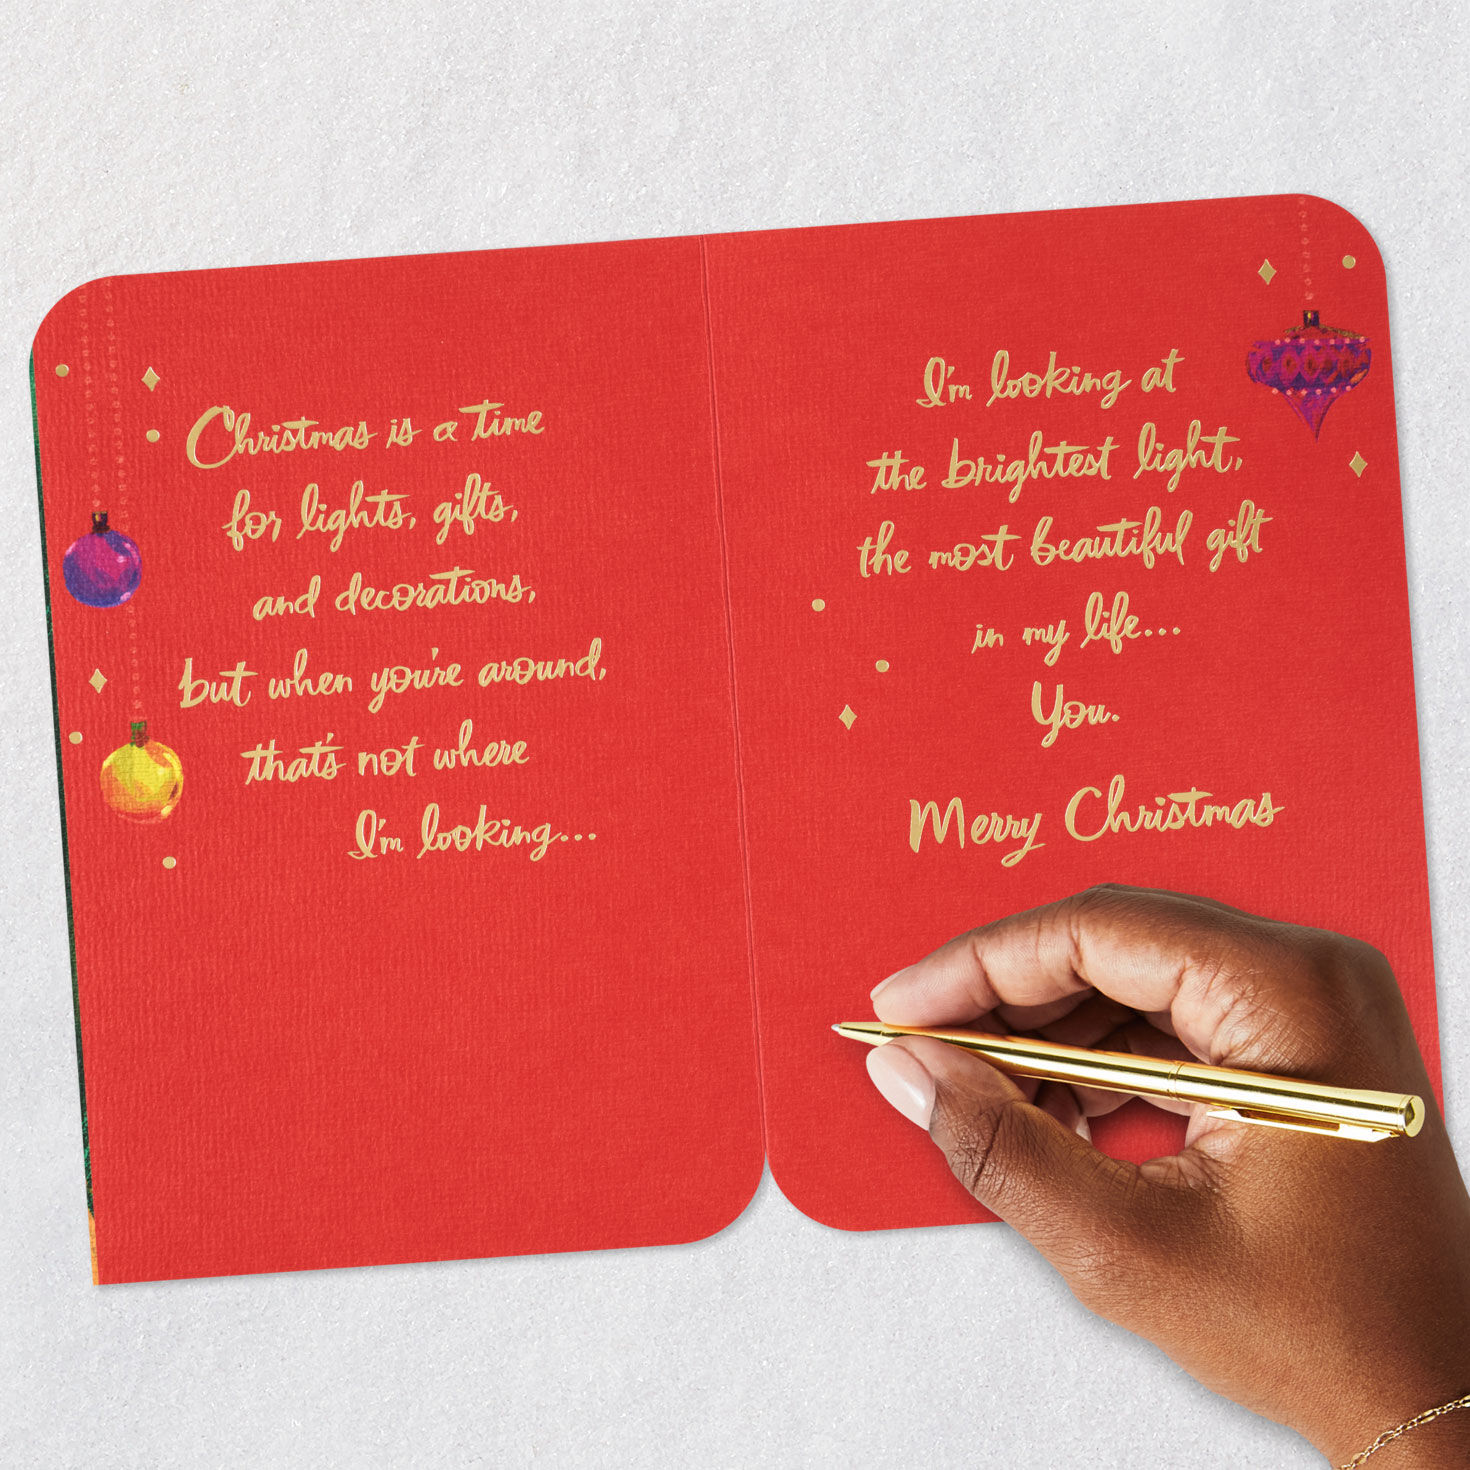 Christmas is a time
for lights, gifts,
and decorations,
but when you're around,
that's not where
I'm looking...
I'm looking at
the brightest light,
the most beautiful gift
in my life...
You.
Merry Christmas